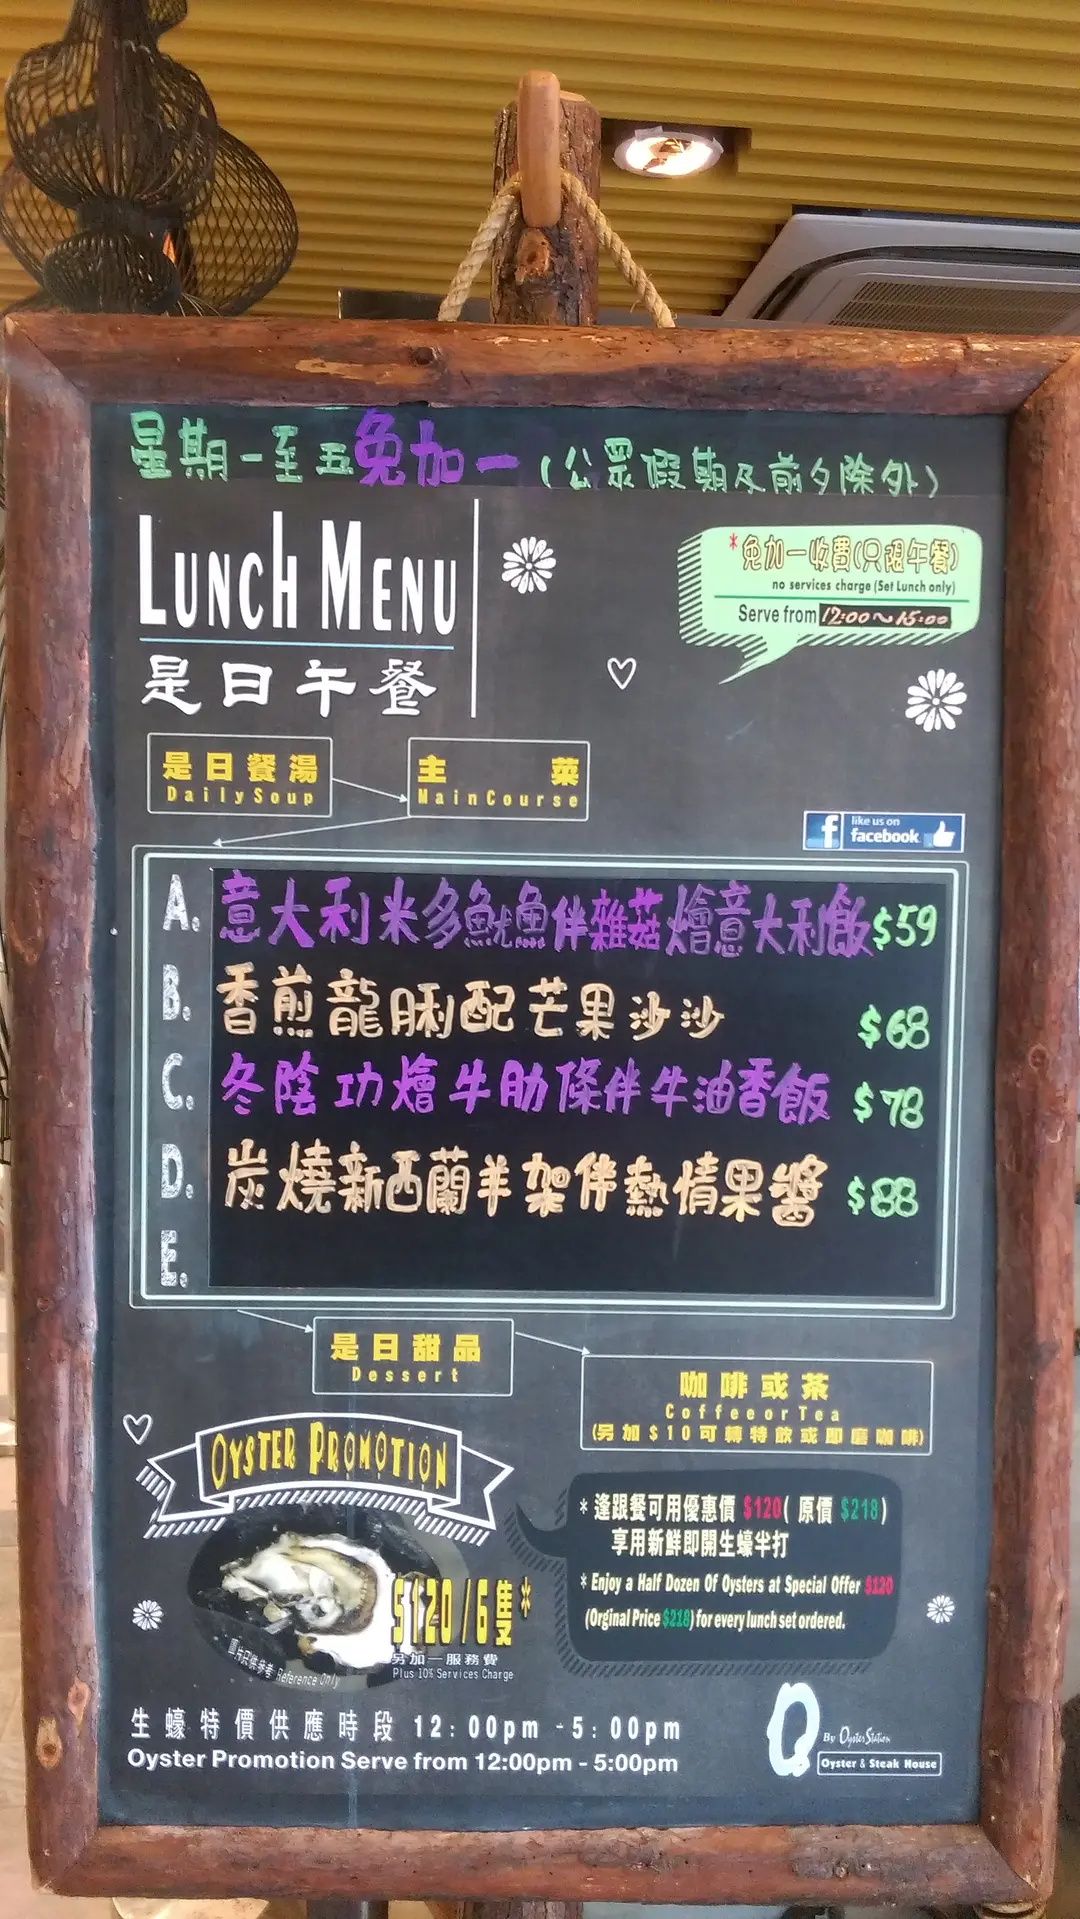 星期一至五免加一(公眾假期及前夕除外)
LUNCH MENU
是日午餐
*免加一收費(只限午餐)
no services charge (Set Lunch only)
Serve from 12:00~15:00
是日餐湯
Daily Soup
主菜
Main Course
like us on
facebook
A. 意大利米多魷魚伴雜菇燴意大利飯 $59
B. 香煎龍脷配芒果沙沙 $68
C. 冬陰功燴牛肋條伴牛油香飯 $78
D. 炭燒新西蘭羊架伴熱情果醬 $88
E.
是日甜品
Dessert
咖啡或茶
Coffee or Tea
(另加$10可轉特飲或即磨咖啡)
OYSTER PROMOTION
$120/6隻*
另加一服務費
Plus 10% Services Charge
圖片只供參考 Reference Only
*逢跟餐可用優惠價 $120(原價 $218)
享用新鮮即開生蠔半打
*Enjoy a Half Dozen Of Oysters at Special Offer $120
(Orginal Price $218) for every lunch set ordered.
生蠔特價供應時段 12:00pm -5:00pm
Oyster Promotion Serve from 12:00pm - 5:00pm
Q By Oyster Station
Oyster & Steak House